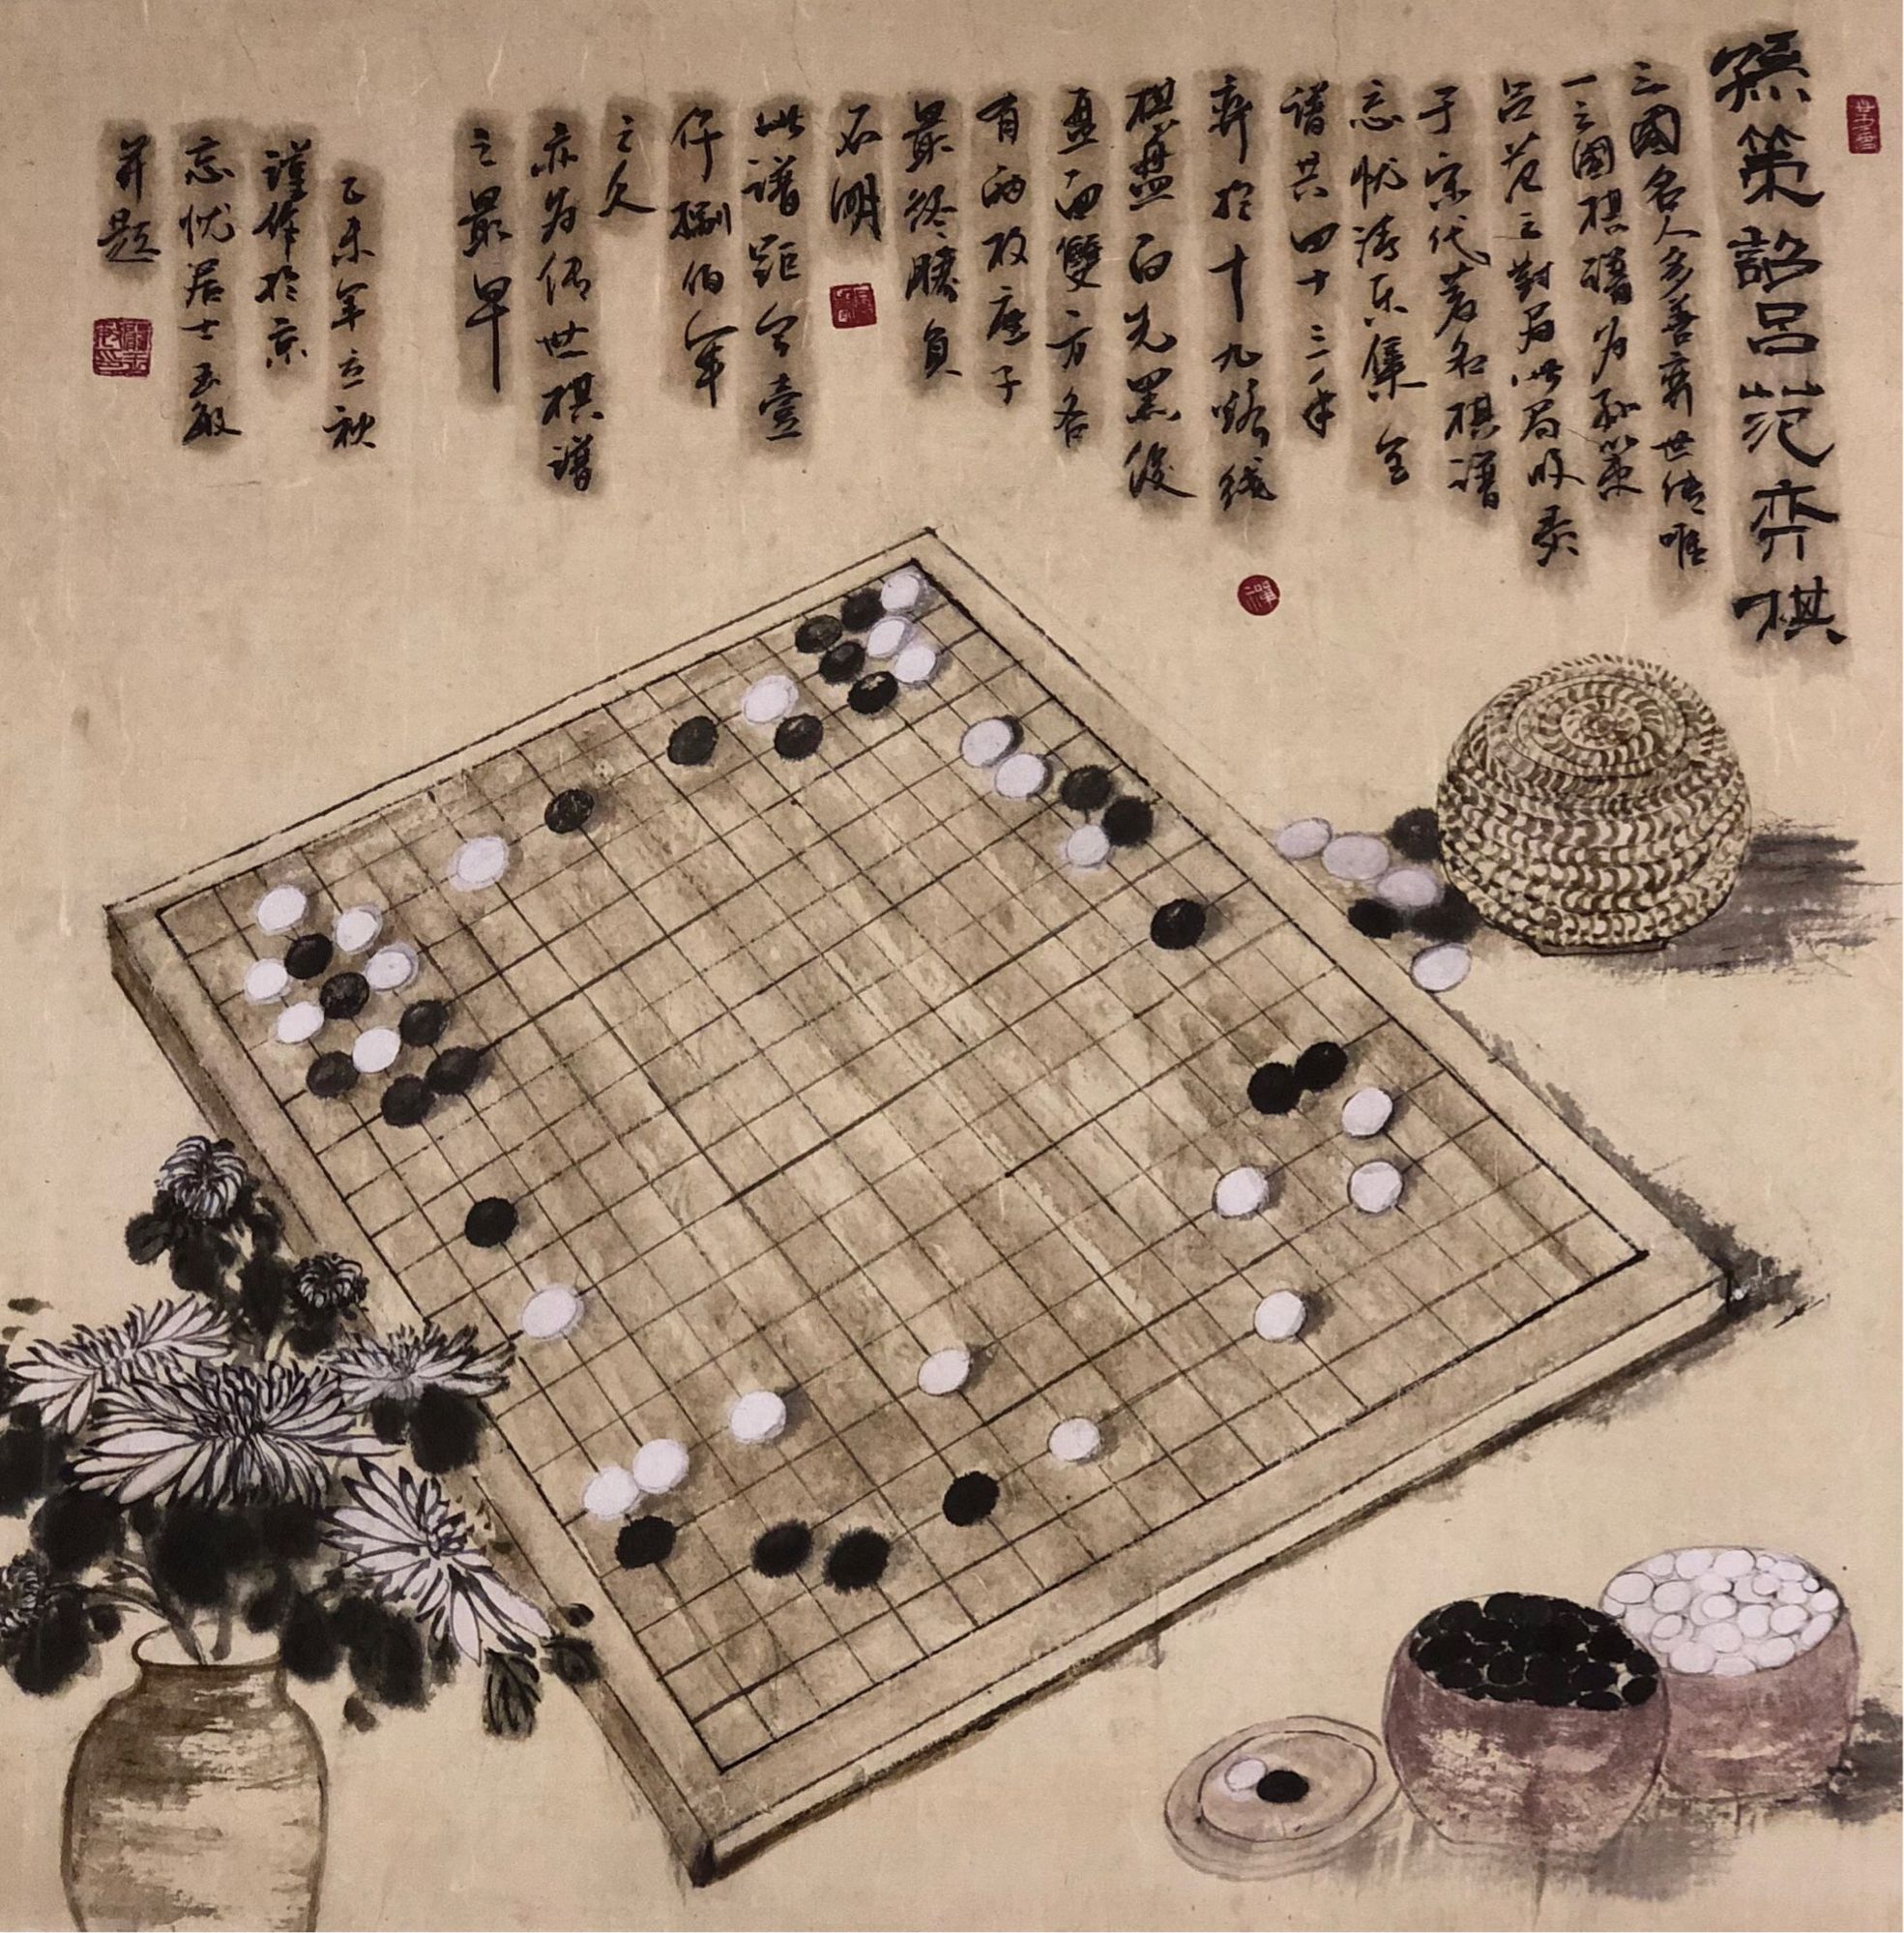 孫策詔呂范弈棋
三國名人多善弈世传唯
一三國棋譜为孙策
吕范之對局此局收录
于宋代著名棋譜
忘忧清乐集全
谱共四十三手
弈於十九路线
棋盤白先黑後
盘面雙方各
有两枚座子
最終勝負
不明
此譜距今壹
仟捌佰年
之久
亦为传世棋譜
之最早
乙未年立秋
謹作於京
忘忧居士玉敏
并题